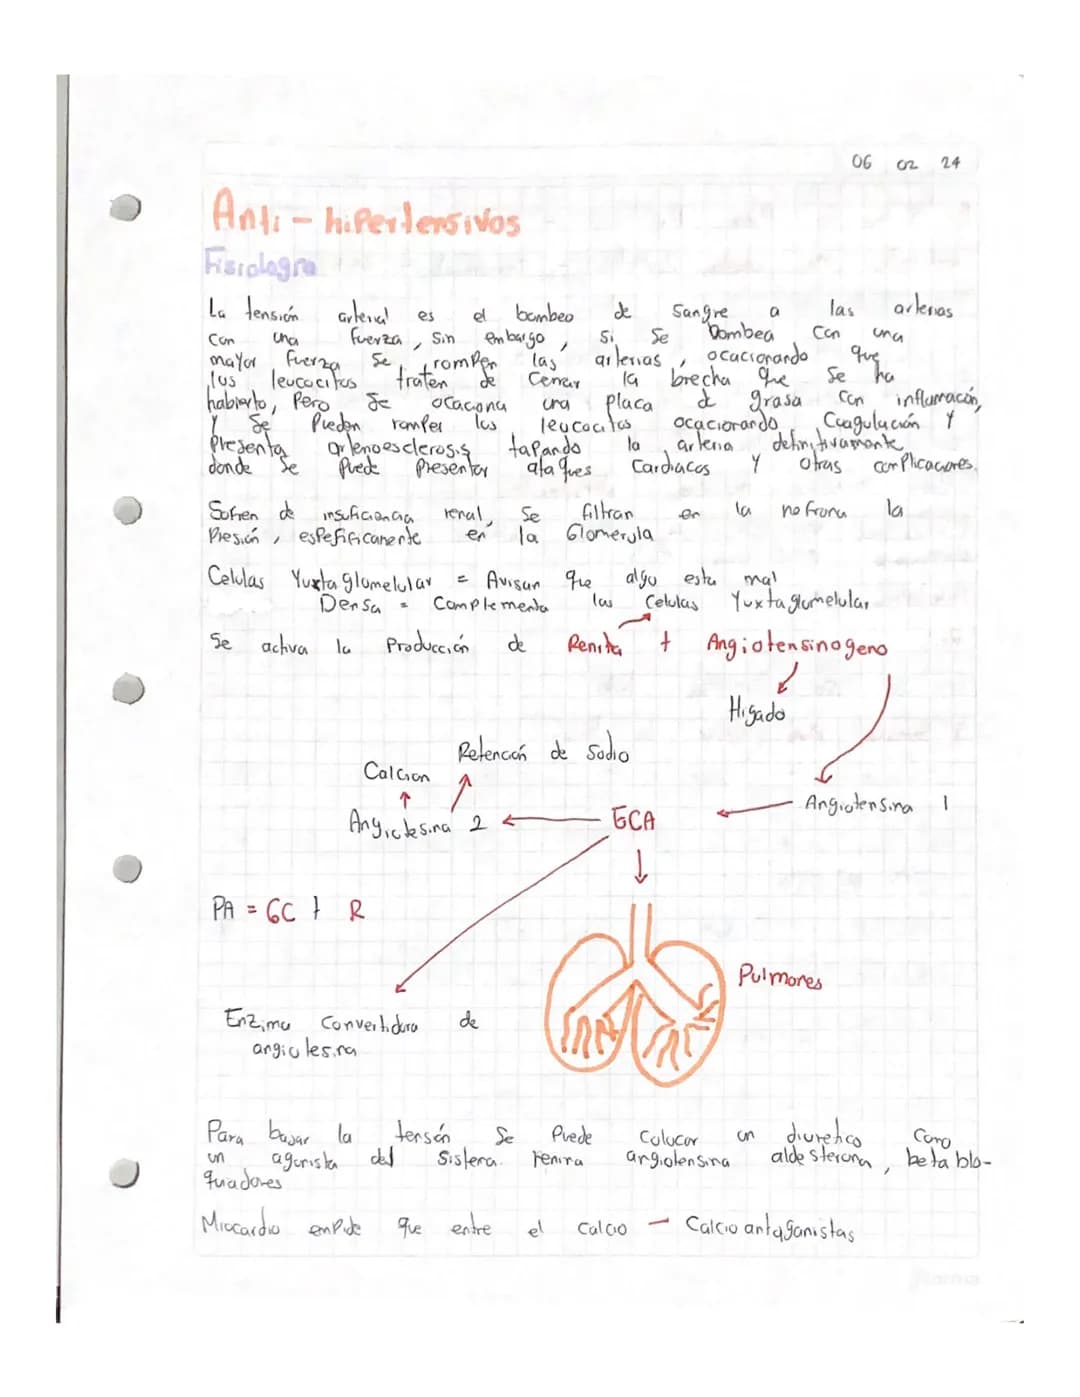 06 02 24
Anti-hipertensivos
Fisiologia
La tensión arterial es el bombeo de sangre a las arterias
con una fuerza, sin embargo, si se bombea con una
mayor fuerza se rompen las arterias, ocacionando que
los leucocitos traten de cerrar la brecha que se ha
habierto, pero se ocaciona una placa de grasa con inflamación,
y se pueden romper los leucocitos ocacionando Coagulación y
presenta arterioesclerosis tapando la arteria definitivamente
donde se puede presentar ataques cardiacos y otras complicaciones.
Sofren de insuficiencia renal, se filtran en la nefrona la
Presión, espefificanente en la Glomerula
Celulas Yuxtaglomelular = Avisan que algo esta mal
Densa = Complementa las Celulas Yuxtaglomelular
Se activa la Producción de Renina + Angiotensinogeno
Higado
Retención de Sodio
Calcion
Angiotensina 1
Angiotesina 2
ECA
PA = GC + R
Pulmones
Enzima Convertidora de
angiotesina
Para bajar la tensón se puede colocar un diuretico como
un agonista del sistema renina angiotensina aldesterona, beta blo-
queadores
Miocardio empide que entre el calcio - Calcio antagonistas